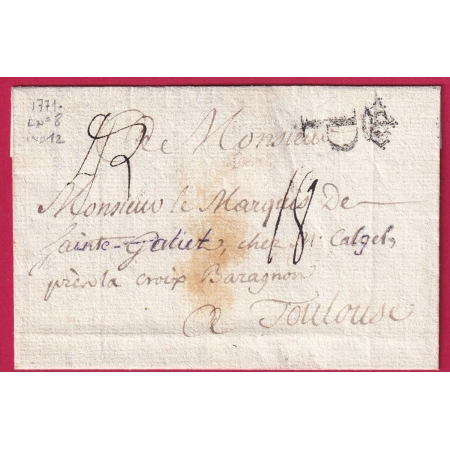 1771.
L N° 8
IND 12
De Monsieur
P
Monsieur le Marquis De
Sainte-Galiet, chez Mr Calgel,
près la croix Baragnon
18
a Toulouse